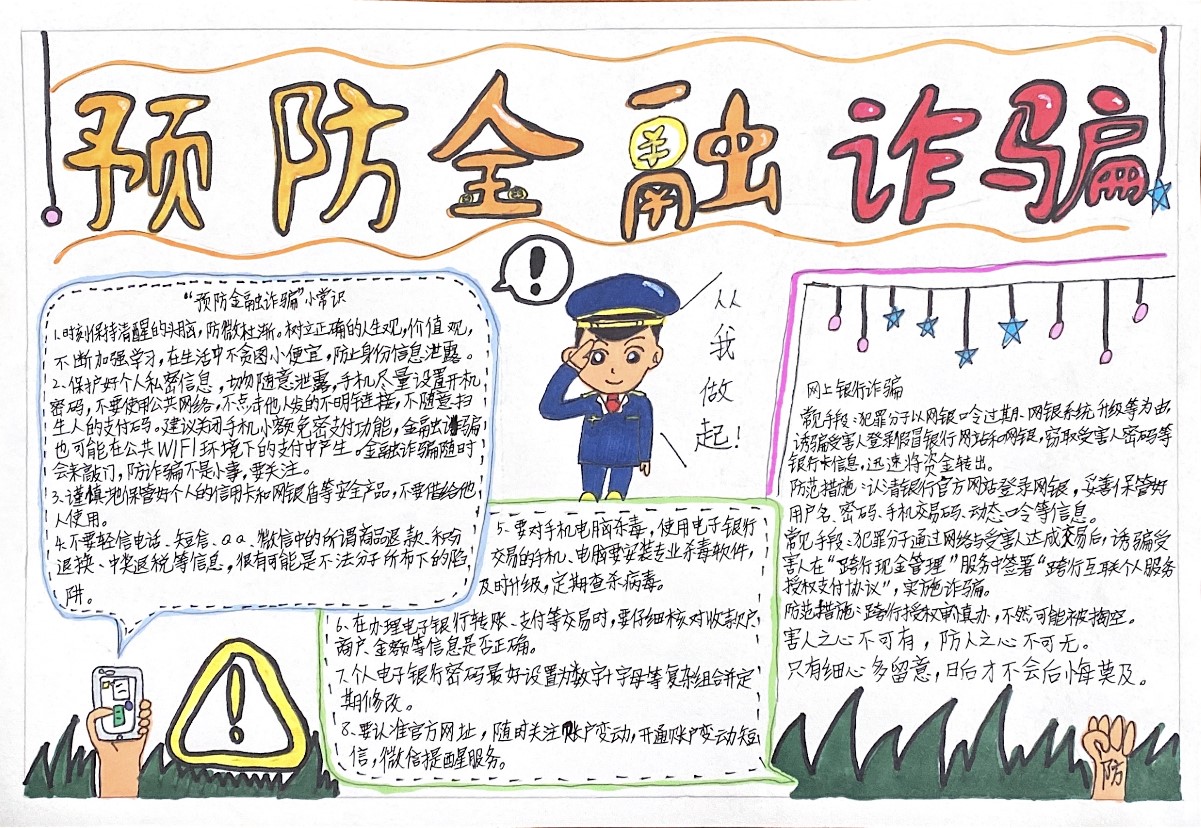 预防金融诈骗
!
从
我
做
起!
“预防金融诈骗”小常识
1.时刻保持清醒的头脑,防微杜渐。树立正确的人生观,价值观,
不断加强学习,在生活中不贪图小便宜,防止身份信息泄露。
2.保护好个人私密信息,切勿随意泄露,手机尽量设置开机
密码,不要使用公共网络,不点击他人发的不明链接,不随意扫
生人的支付码。建议关闭手机小额免密支付功能,金融诈骗
也可能在公共WIFI环境下的支付中产生。金融诈骗随时
会来敲门,防诈骗不是小事,要关注。
3.谨慎地保管好个人的信用卡和网银盾等安全产品,不要借给他
人使用。
4.不要轻信电话、短信、QQ、微信中的所谓商品退款、积分
退换、中奖退税等信息,很有可能是不法分子所布下的陷
阱。
5.要对手机电脑杀毒,使用电子银行
交易的手机、电脑要安装专业杀毒软件,
及时升级,定期查杀病毒。
6.在办理电子银行转账、支付等交易时,要仔细核对收款户
商户、金额等信息是否正确。
7.个人电子银行密码最好设置为数字+字母等复杂组合并定
期修改。
8.要认准官方网址,随时关注账户变动,开通账户变动短
信,微信提醒服务。
网上银行诈骗
常见手段:犯罪分子以网银口令过期、网银系统升级等为由,
诱骗受害人登录假冒银行网站和网银,窃取受害人密码等
银行卡信息,迅速将资金转出。
防范措施:认清银行官方网站登录网银,妥善保管好
用户名、密码、手机交易码、动态口令等信息。
常见手段:犯罪分子通过网络与受害人达成交易后,诱骗受
害人在“跨行现金管理”服务中签署“跨行互联个人服务
授权支付协议”,实施诈骗。
防范措施:跨行授权审慎办,不然可能被掏空。
害人之心不可有,防人之心不可无。
只有细心多留意,日后才不会后悔莫及。
防